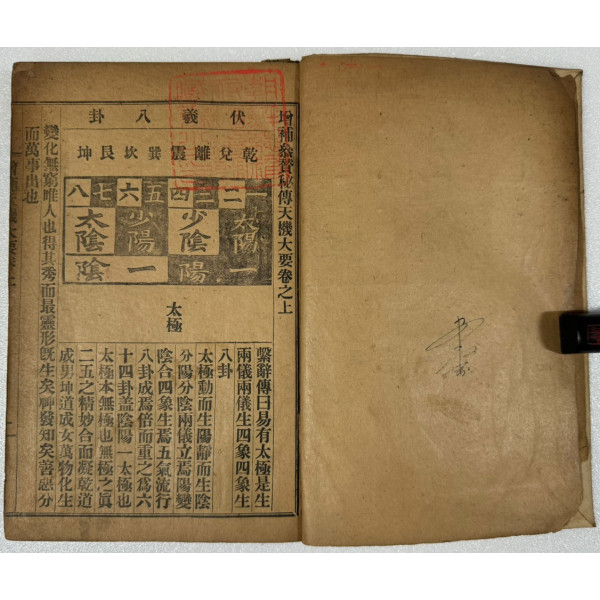 增補參贊秘傳天機大要卷之上
伏羲八卦
乾兌離震巽坎艮坤
一二三四五六七八
太陽 少陰 少陽 太陰
一 陽 一 陰
太極
繫辭傳曰易有太極是生
兩儀兩儀生四象四象生
八卦
太極動而生陽靜而生陰
分陽分陰兩儀立焉陽變
陰合四象生焉五氣流行
八卦成焉倍而重之爲六
十四卦盖陰陽一太極也
太極本無極也無極之眞
二五之精妙合而凝乾道
成男坤道成女萬物化生
變化無窮唯人也得其秀而最靈形旣生矣神發知矣善惡分
而萬事出也